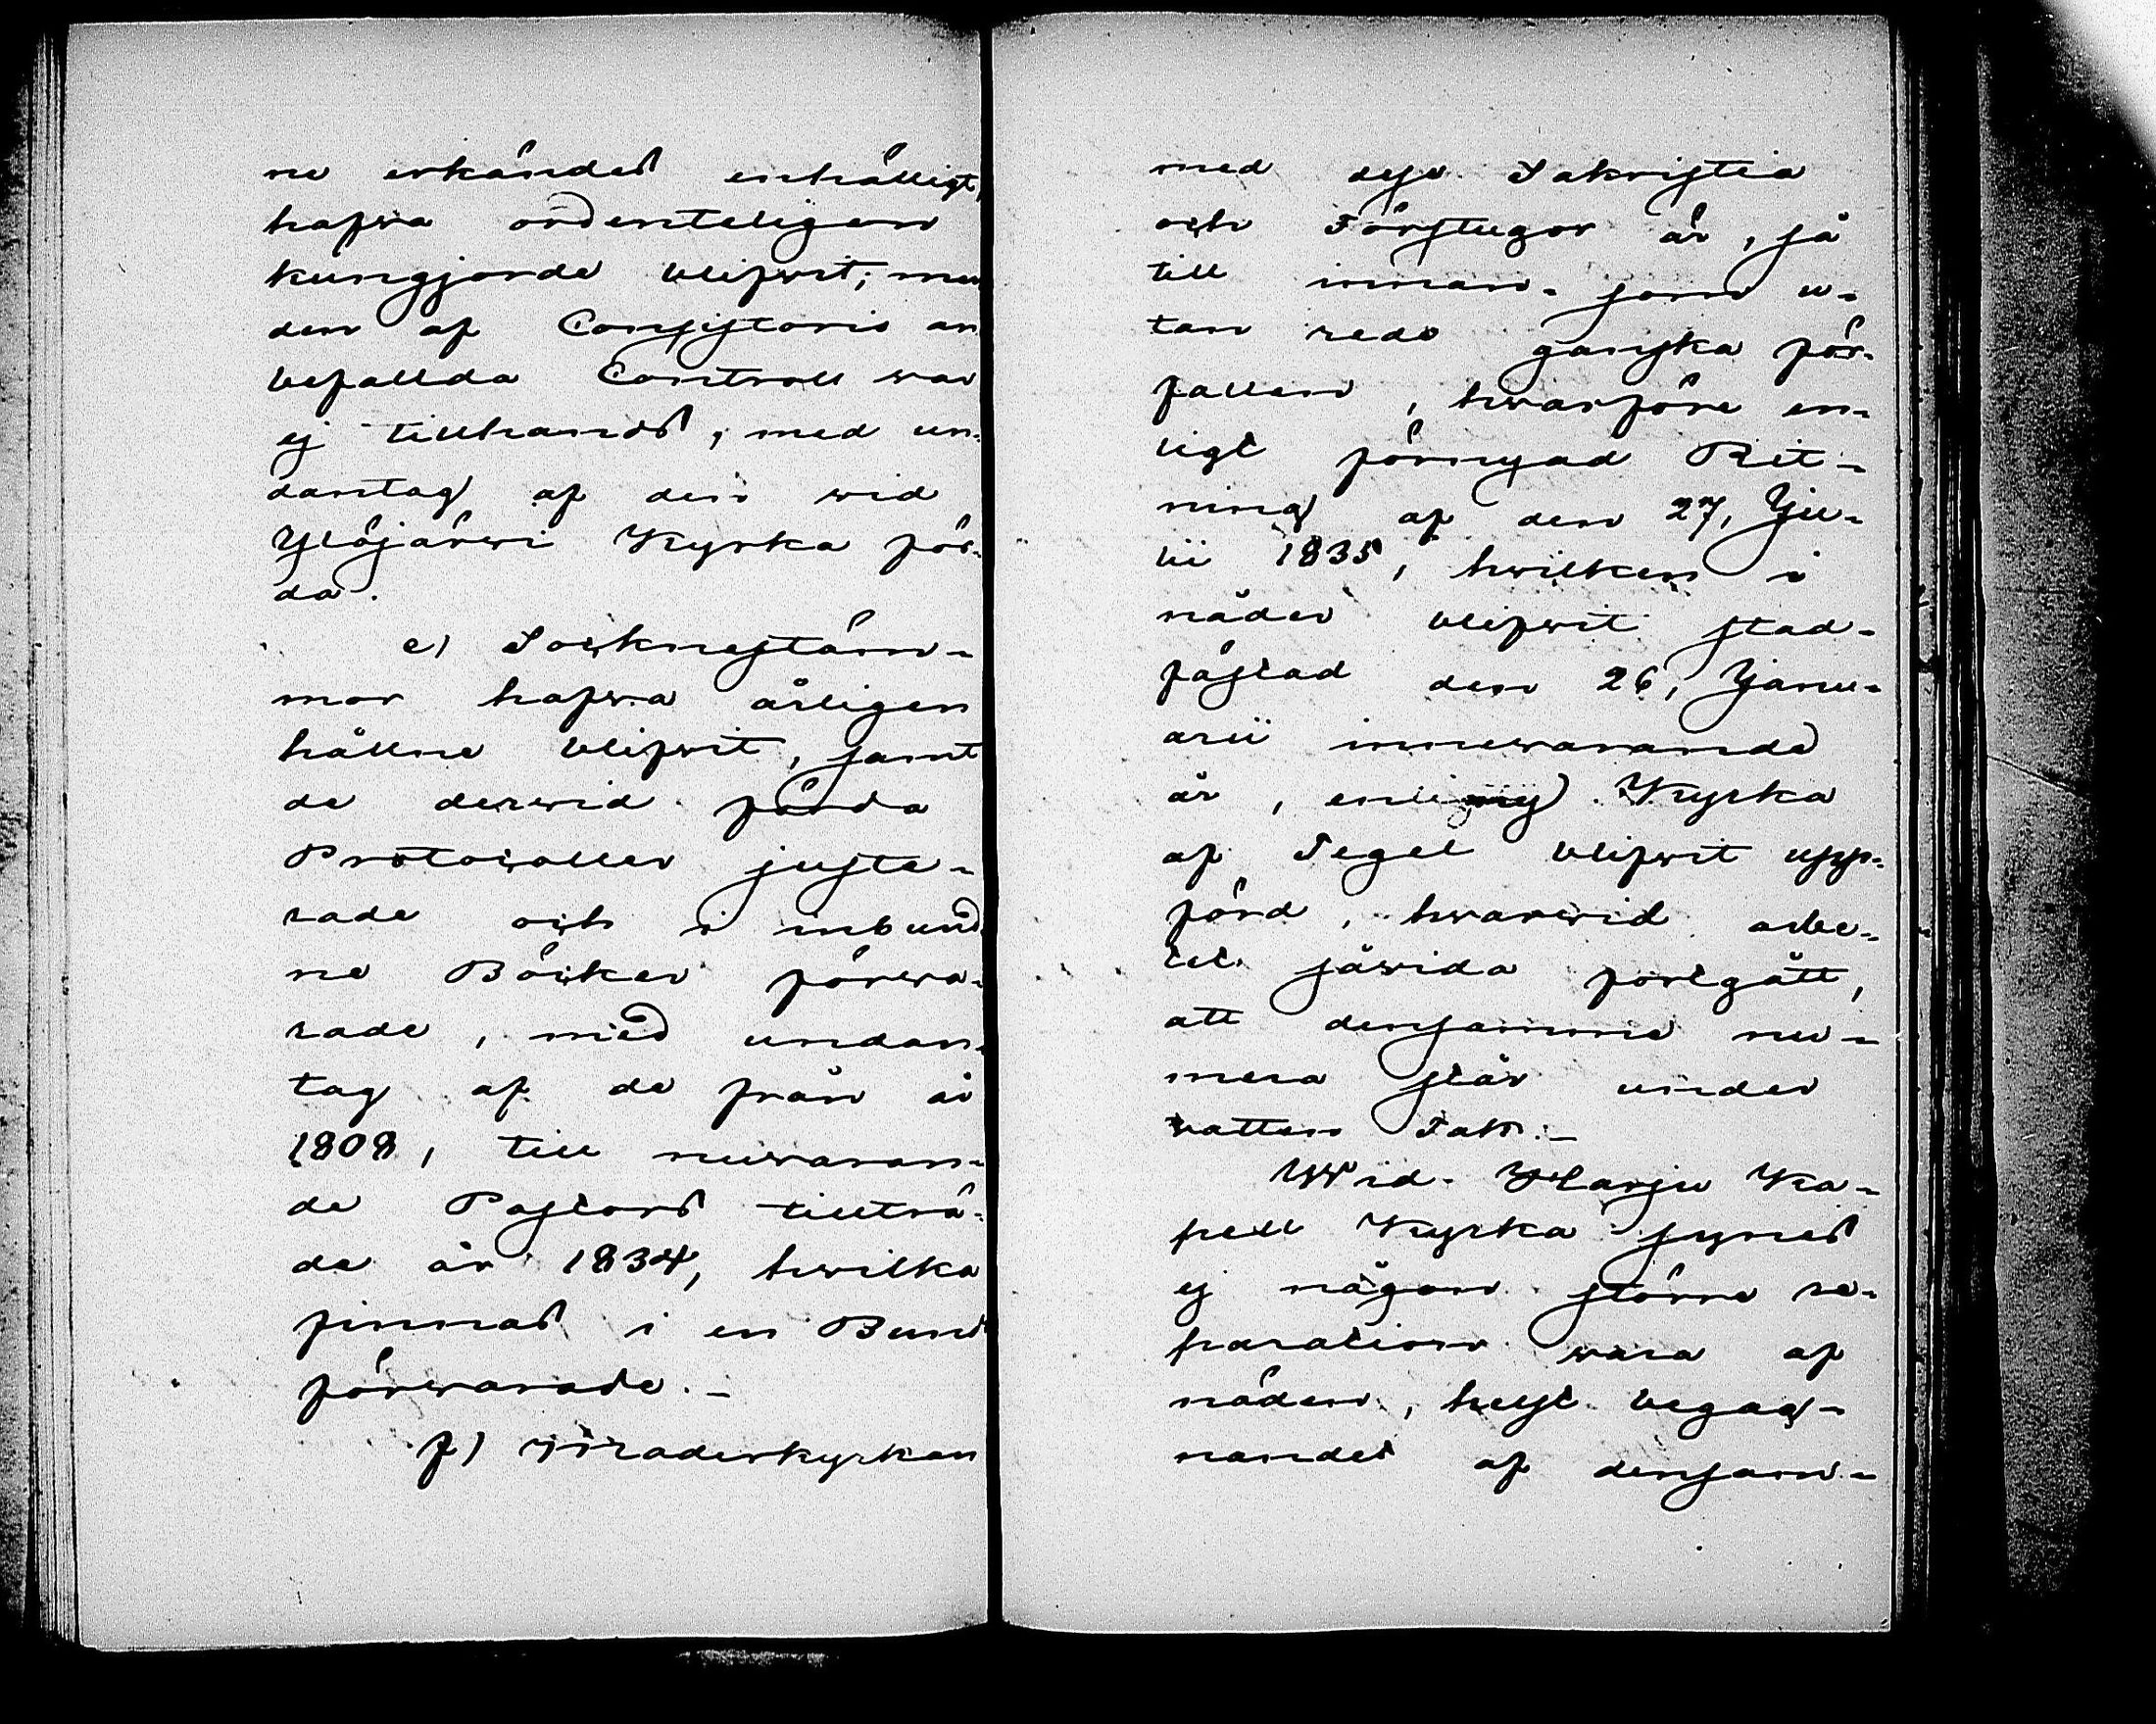 ne erkändes enhälligt,
hafva ordenteligen
kungjorde blifvit; men
den af Consistorio an
befallda Controll var
ej tillhands, med un-
dantag af den wid
Ylöjärwi Kyrka för-
da.
e) Socknestäm-
mor hafva årligen
hållne blifvit, samt
de derwid förda
Protocoller juste-
rade och i inbund
ne Böcker förwa-
rade, med undan-
tag af de från år
1808, till nuwaran-
de Pastors tillträ-
de år 1834, hwilka
finnas i en Bunt
förwarade.-
f) Moderkyrkan
med dess Sakristia
och Förstugor är, så
till innan- som u-
tan rede ganska för-
fallen, hwarföre en-
ligt förnyad Rit-
ning af den 27, Ju-
lii 1835, hwilken i
nåder blifvit stad-
fästad den 26, Janu-
arii innewarande
år, en ny Kyrka
af Tegel blifvit upp-
förd, hwarwid arbe-
tet såwida fortgått,
att densamma nu-
mera står under
vatten Tak.-
Wid Harju Ka-
pell Kyrka synes
ej någon större re-
paration wara af
nöden, helst begag-
nandet af densam-